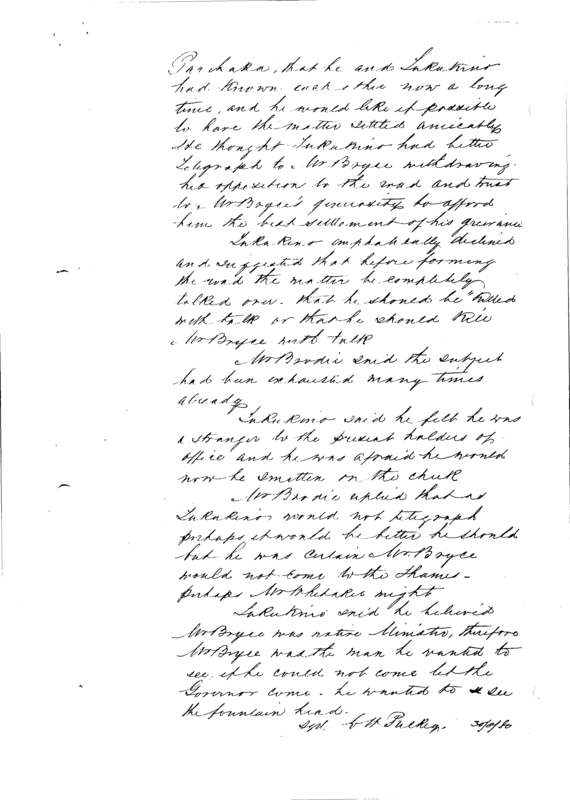 Parihaka, that he and Tukukino
had known each other now a long
time, and he would like if possible
to have the matter settled amicably
He thought Tukukino had better
Telegraph to Mr Bryce withdrawing
his opposition to the road and trust
to Mr Bryce's generosity to afford
him the best settlement of his grievance
Tukukino emphatically declined
and suggested that before forming
the road the matter be completely
talked over. that he should be "killed
with talk or that he should kill
Mr Bryce with talk
Mr Brodie said the subject
had been exhausted many times
already
Tukukino said he felt he was
a stranger to the present holders of
office and he was afraid he would
now be smitten on the cheek
Mr Brodie replied that as
Tukukino would not telegraph
perhaps it would be better he should
but he was certain Mr Bryce
would not come to the Thames -
perhaps Mr Whitaker might
Tukukino said he believed
Mr Bryce was native Minister, therefore
Mr Bryce was the man he wanted to
see, if he could not come let the
Governor come - he wanted to see
the fountain head.
Sgd. Puckey.